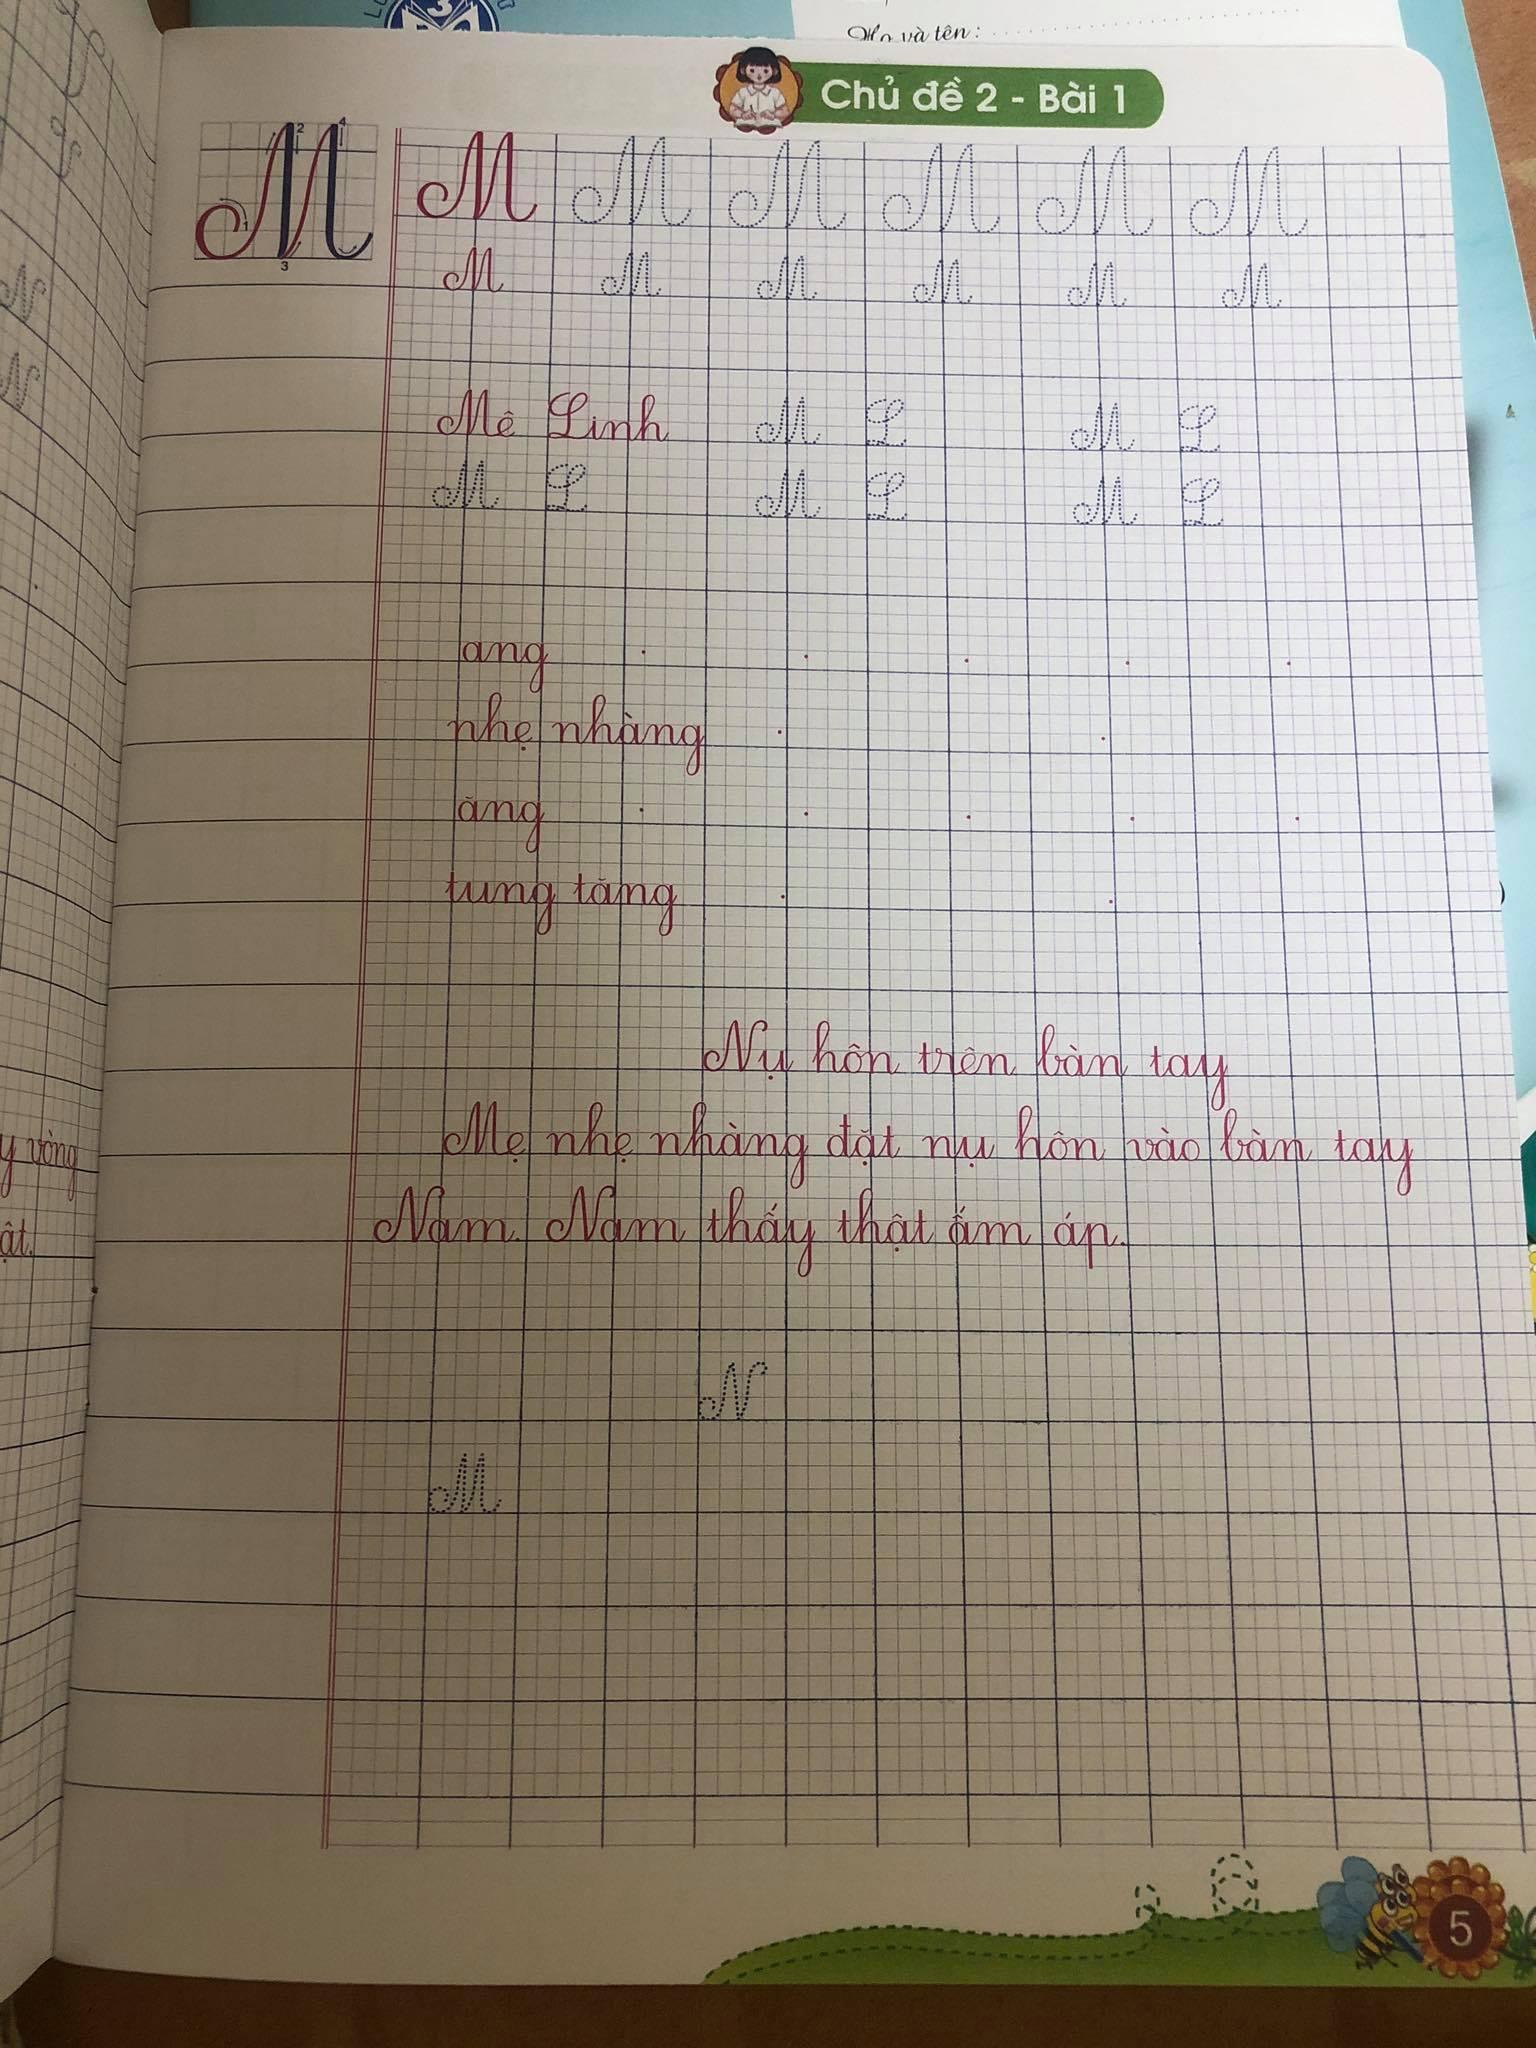 3
Họ và tên:
Chủ đề 2 - Bài 1
1 2 3 4
M M M M M M M
M M M M M M
Mê Linh M L M L
M L M L M L
ang
nhẹ nhàng
ăng
tung tăng
Nụ hôn trên bàn tay
Mẹ nhẹ nhàng đặt nụ hôn vào bàn tay
Nam. Nam thấy thật ấm áp.
N
M
N
N
y vàng
ật.
5